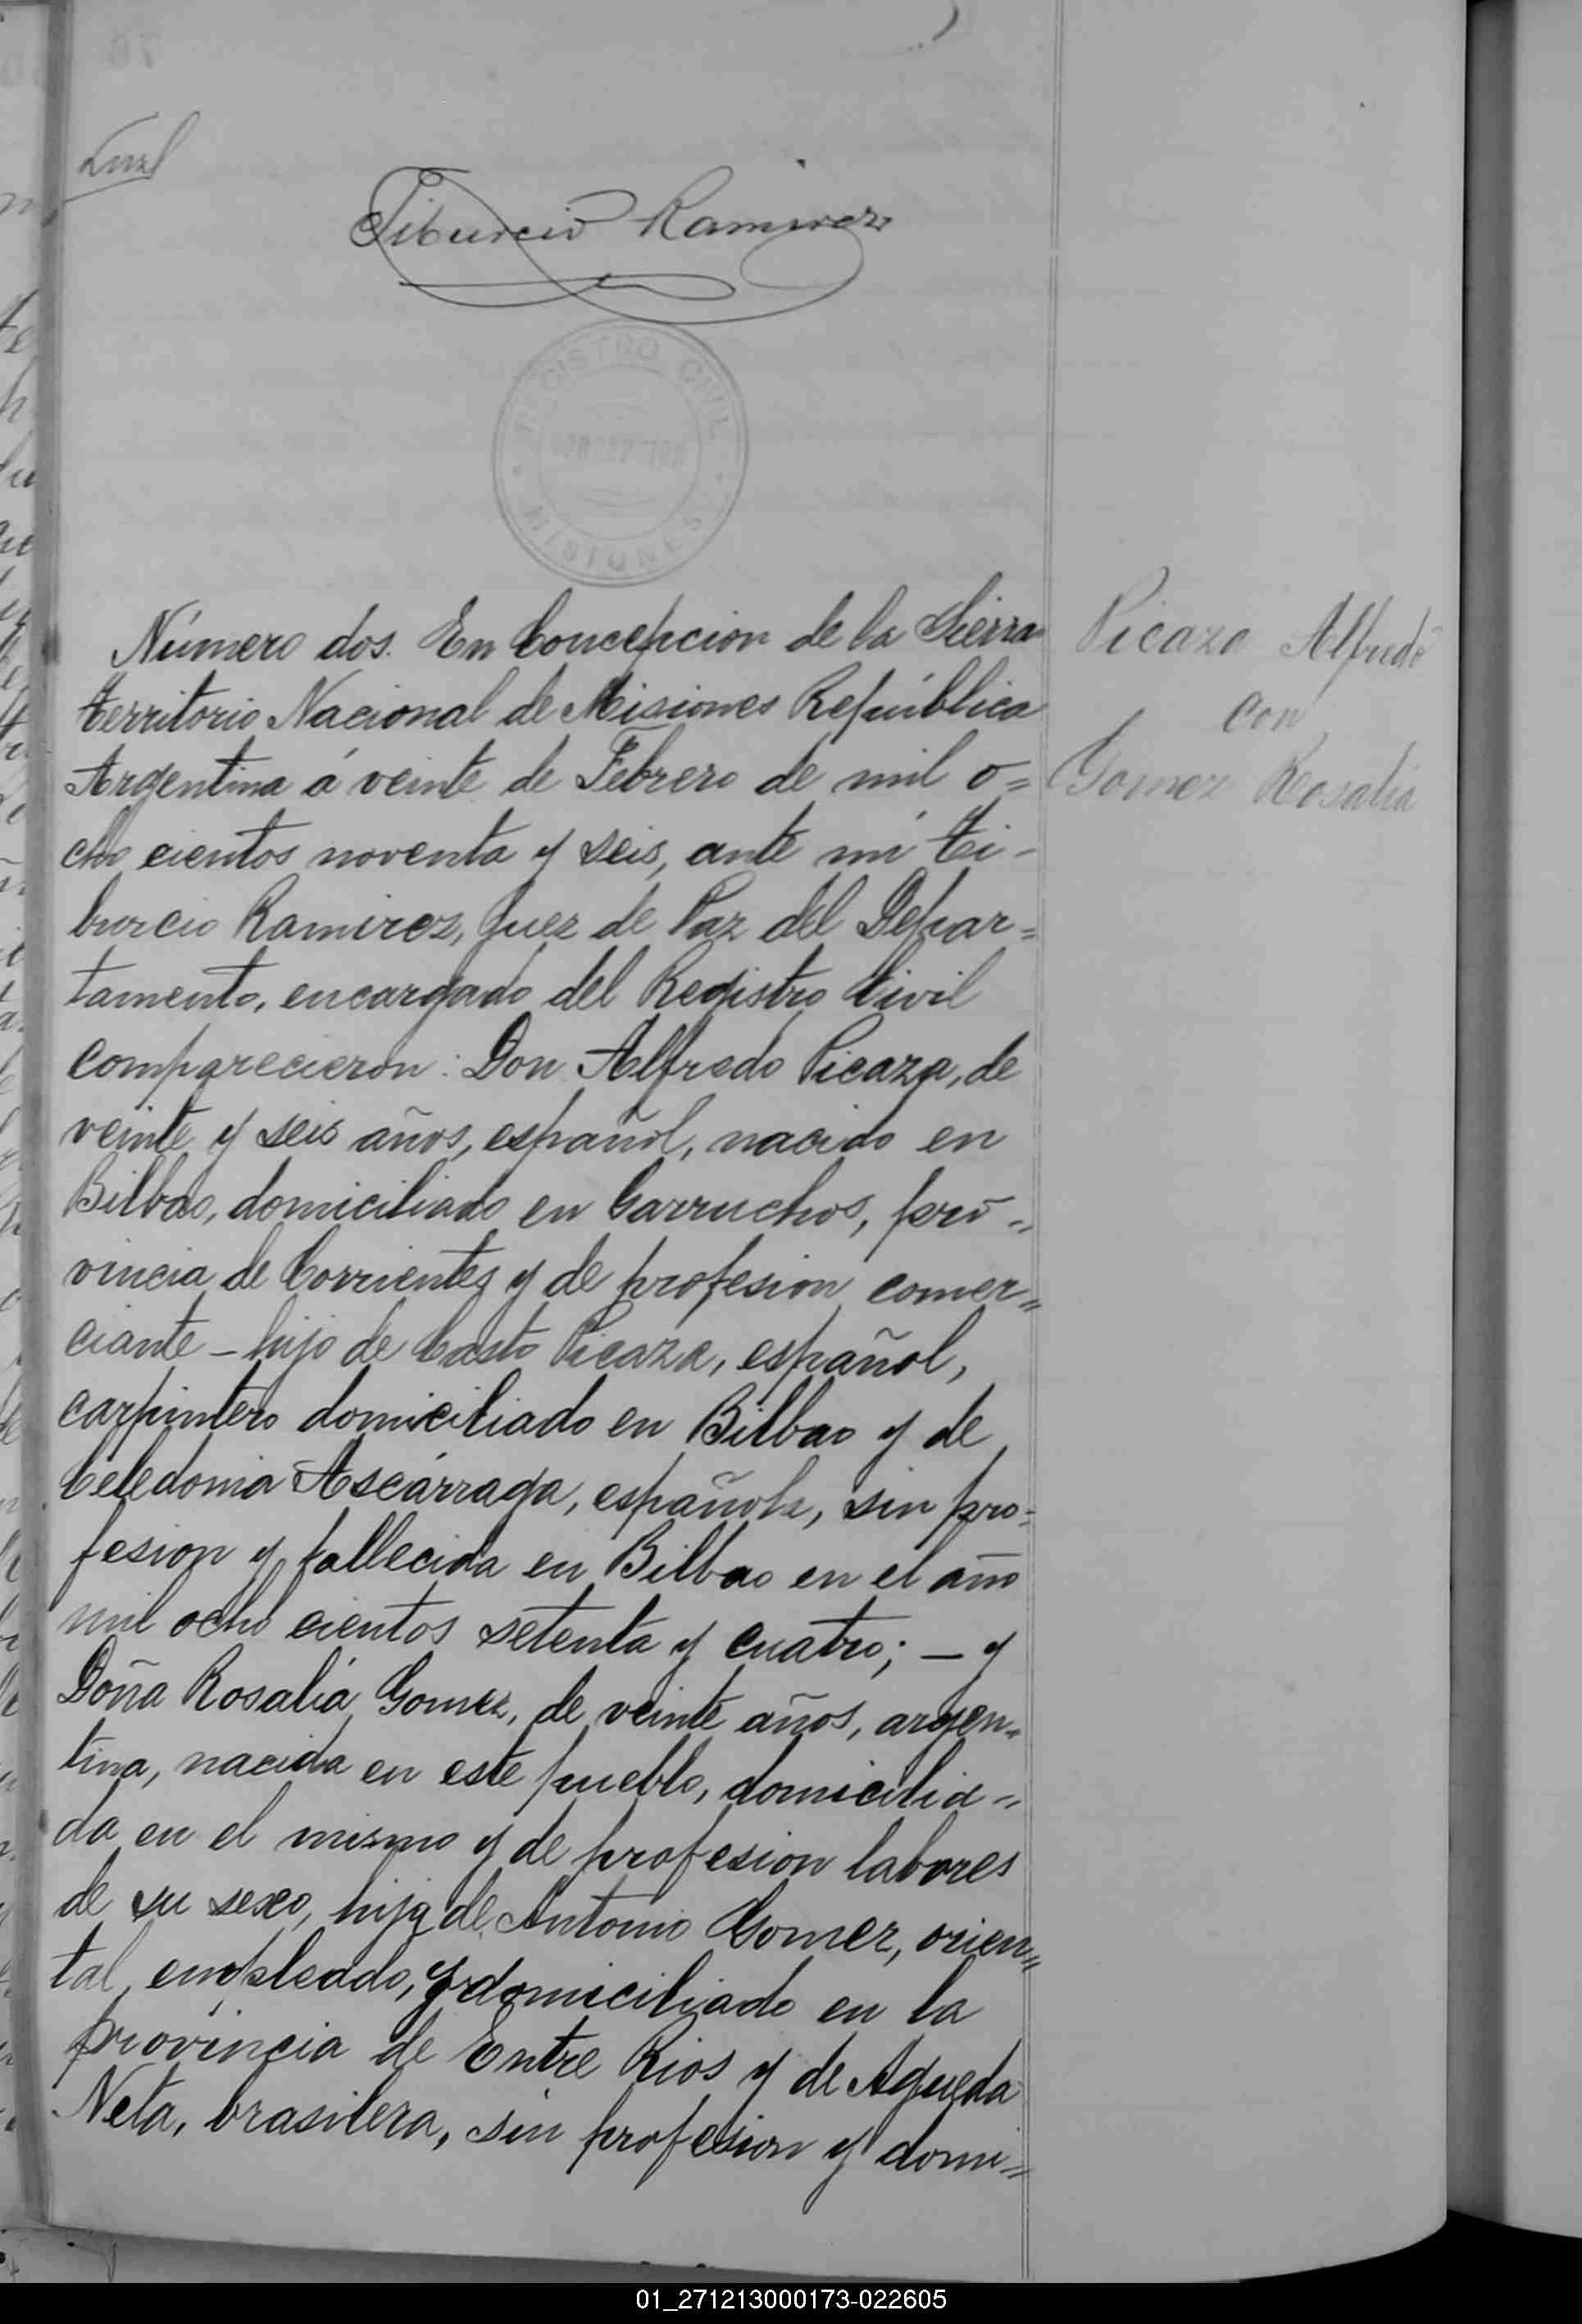 Tiburcio Ramirez
REGISTRO CIVIL
MISIONES
Número dos. En Concepcion de la Sierra
territorio Nacional de Misiones República
Argentina á veinte de Febrero de mil o=
cho cientos noventa y seis, ante mi Ti-
burcio Ramirez, Juez de Paz del Depar=
tamento, encargado del Registro Civil
comparecieron: Don Alfredo Picaza, de
veinte y seis años, español, nacido en
Bilbao, domiciliado en Garruchos, pro=
vincia de Corrientes y de profesion comer=
ciante – hijo de Casto Picaza, español,
carpintero domiciliado en Bilbao y de
Celedonia Ascárraga, española, sin pro=
fesion y fallecida en Bilbao en el año
mil ocho cientos setenta y cuatro; – y
Doña Rosalía Gomez, de veinte años, argen=
tina, nacida en este pueblo, domicilia=
da en el mismo y de profesion labores
de su sexo, hija de Antonio Gomez, orien=
tal, empleado, y domiciliado en la
provincia de Entre Rios y de Agueda
Neta, brasilera, sin profesion y domi=
Picaza Alfredo
con
Gomez Rosalía
01_271213000173-022605